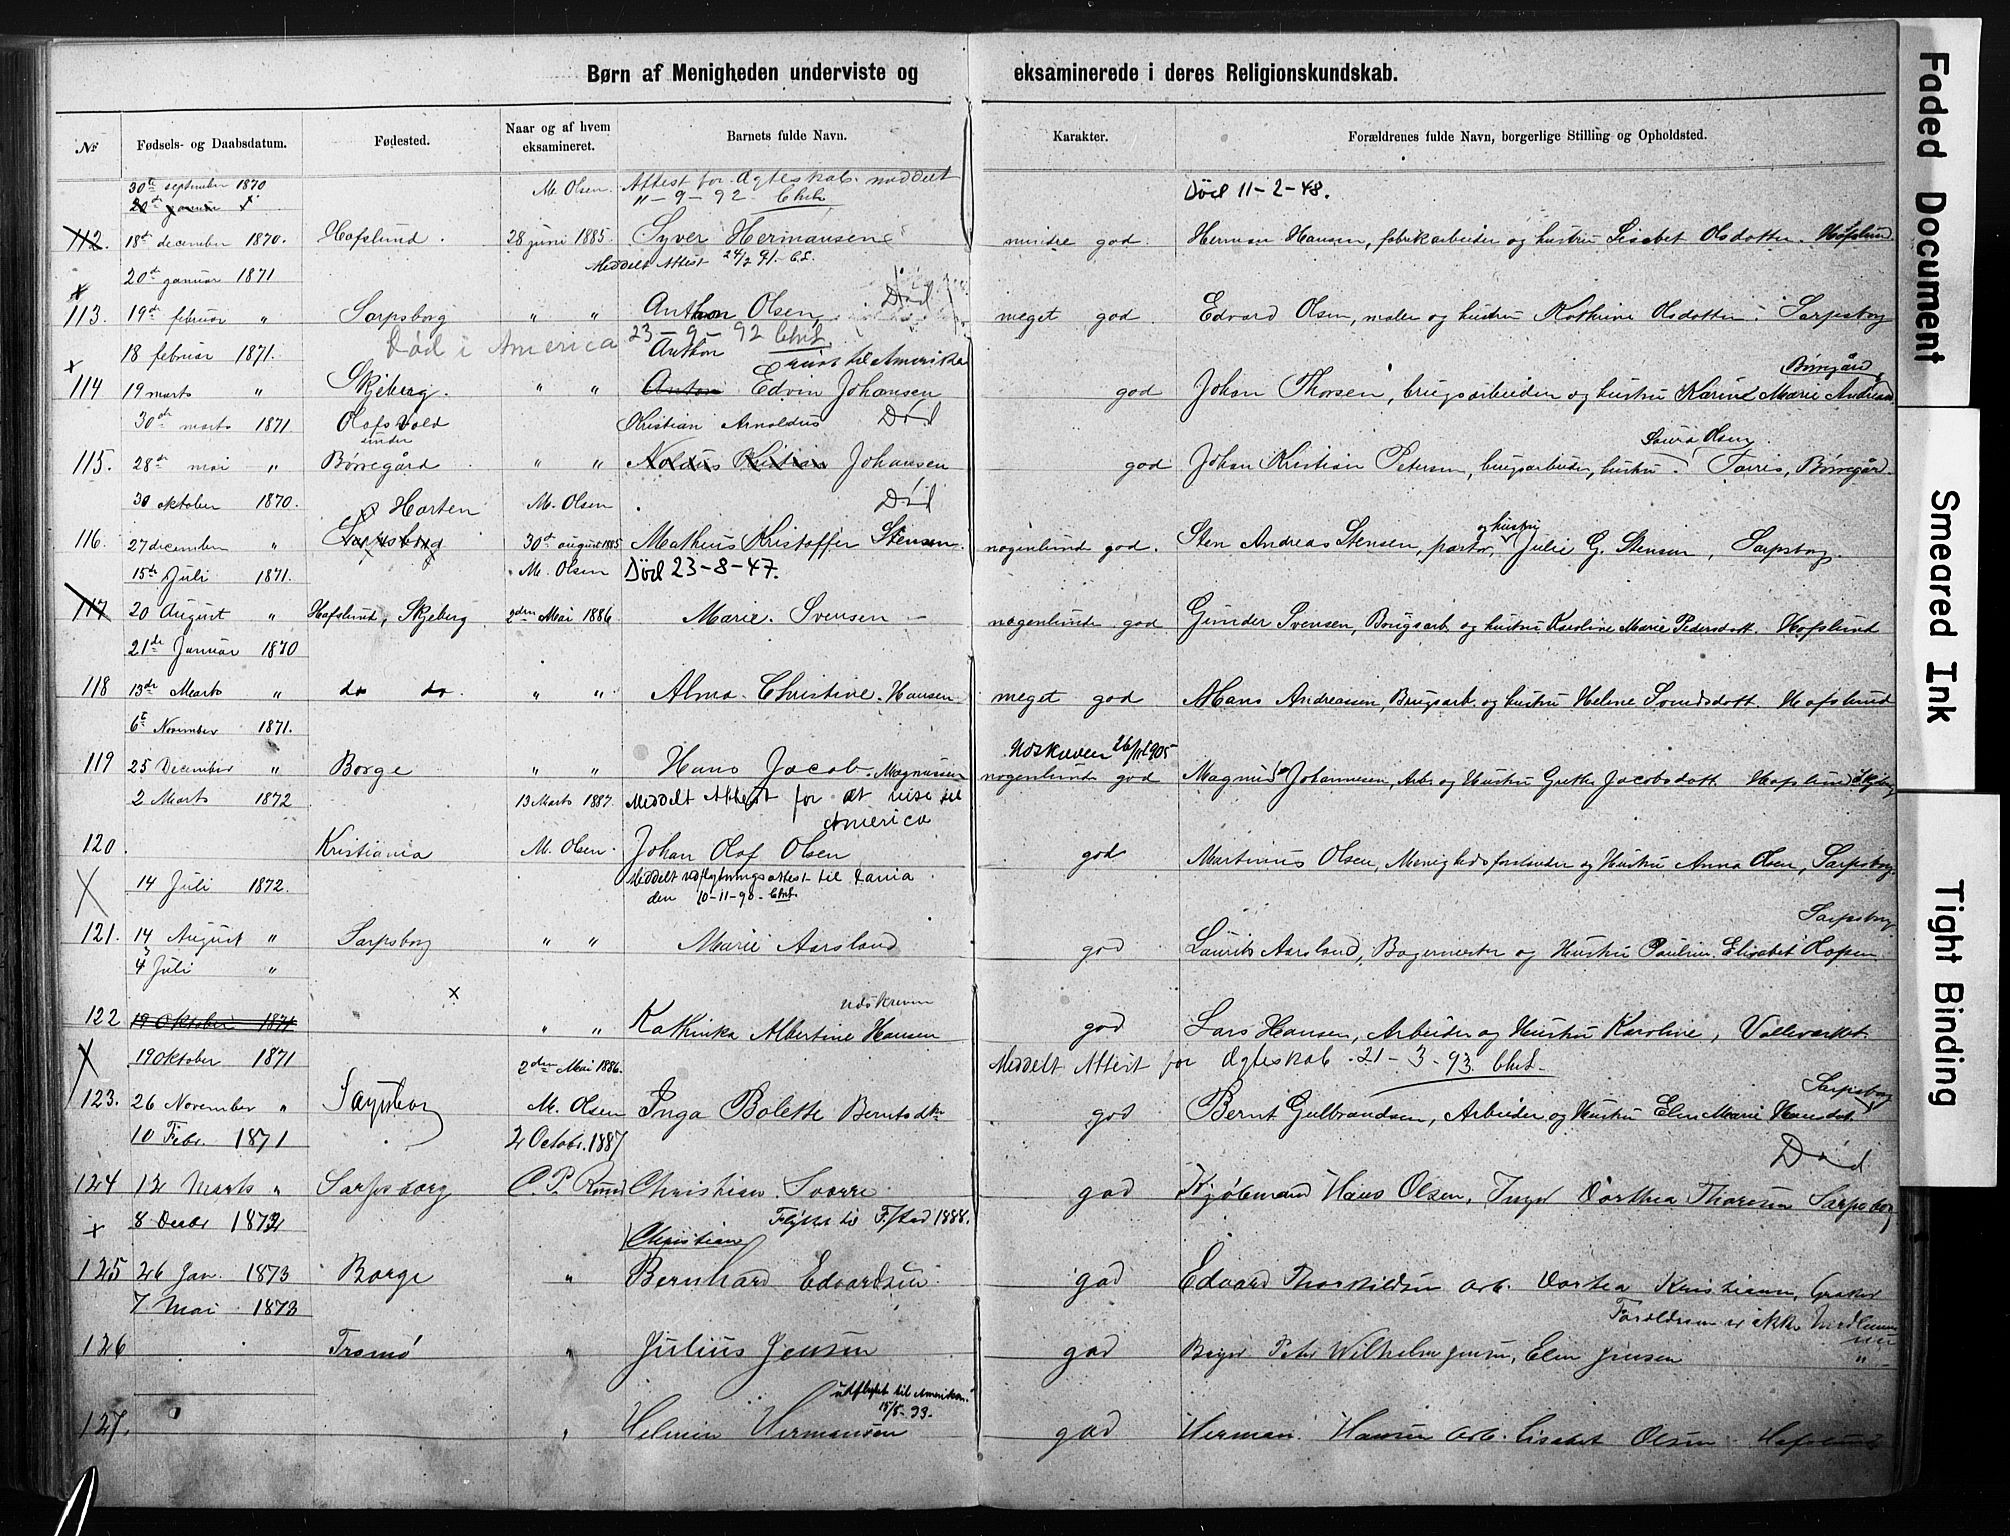 Børn af Menigheden underviste og eksaminerede i deres Religionskundskab.
№ Fødsels- og Daabsdatum. Fødested. Naar og af hvem eksamineret. Barnets fulde Navn. Karakter. Forældrenes fulde Navn, borgerlige Stilling og Opholdsted.
30te september 1870 M. Olsen. Attest for Ægteskab meddelt Død 11-2-48.
20de januar 11-9-92 Chrb
112. 18de december 1870. Hafslund. 28 juni 1885. Syver Hermansen mindre god. Herman Hansen, fabrikarbeider og hustru Lisabet Olsdatter. Hafslund
Meddelt Attest 24/2 91. C.L.
20de januar 1871
113. 19de februar " Sarpsborg " " Anthon Olsen Død meget god Edvard Olsen, maler og hustru Kathrine Olsdatter. Sarpsborg
Død i America 23-9-92 Chrb
18 februar 1871. Anthon reist til Amerika
114 19 marts " Skjeberg. " " Anton Edvin Johansen god Johan Thorsen, brugsarbeider og hustru Karine Marie Andreas. Børregård
30de marts 1871 Olafsvold Christian Arnoldus Død
under Laura Olsen
115. 28de mai " Børregård " " Noldus Kristian Johansen god Johan Kristian Petersen, brugsarbeider, hustru. Torris, Børregård.
30 oktober 1870. Horten M. Olsen Død
116. 27 december " Sarpsborg 30te august 1885 Mathius Kristoffer Stensen. nogenlund god. Sten Andreas Stensen, pastor, og hustru Julie G. Stensen, Sarpsborg.
15de Juli 1871. M. Olsen Død 23-8-47.
117 20 August " Hafslund, Skjeberg 2den Mai 1886 Marie. Svensen nogenlunde god Gunder Svensen, Brugsarb. og hustru Karoline Marie Pedersdatt. Hafslund
21de Januar 1870
118 13de Marts " do do " " Alma Christine Hansen. meget god Hans Andreassen, Brugsarb. og hustru Helene Svendsdatt. Hafslund
6te November 1871. Udskreven 26/11 1905
119 25 December " Borge " " Hans Jacob Magnusen nogenlunde god Magnus Johannesen, Arb. og Hustru Grethe Jacobsdatt. Hafslund Skjeberg
2 Marts 1872 13 Marts 1887. Meddelt Attest for at reise til America
120. Kristiania M. Olsen. Johan Olaf Olsen god Martinius Olsen, Menighedsforstander og Hustru Anna Olsen, Sarpsborg.
14 Juli 1872. Meddelt udflytningsattest til Dania
den 10-11-90. Chrb.
Sarpsborg
121. 14 August " Sarpsborg " " Marie Aarsland god Laurits Aarsland, Bagermester og Hustru Pauline Elisabet Hafsen
4 Juli " x
udskreven
122 19 Oktober 1871 " " Kathinka Albertine Hansen god Lars Hansen, Arbeider og Hustru Karoline, Valleverket.
19 Oktober 1871 2den Mai 1886. Meddelt Attest for Ægteskab. 21-3-93. Chrb.
Sarpsborg
123. 26 November " Sarpsborg M. Olsen Inga Bolette Berntsdtr god Bernt Gulbrandsen, Arbeider og Hustru Elen Marie Hansdat.
10 Febr 1871 2 Octobr. 1887 Død
124 12 Marts " Sarpsborg C. P. Rund Christian. Sverre god Kjøbmand Hans Olsen, Ingvo Dorthea Thoresen Sarpsborg
x 8 Decbr 1872 Flyttet til F/stad 1888.
Christian
125 26 Jan. 1873 Borge " Bernhard Edvardsen god Edvard Thorkildsen Arb. Dorthea Kristiansen, Greaker
7 Mai 1873 Forældrene er ikke Medlemmer
126 Tromø " Julius Jensen god Peter Wilhelm Jensen, Elen Jensen "
udflyttet til Amerika.
15/5-93.
127. " Helmin Hermansen god Herman Hansen Arb. Lisabet Olsen Hafslund
Faded Document
Smeared Ink
Tight Binding